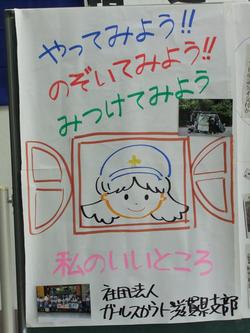 やってみよう!!
のぞいてみよう!!
みつけてみよう
私のいいところ
社団法人
ガールスカウト滋賀県支部